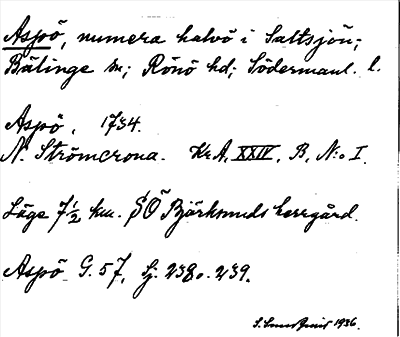 Aspö, numera halvö i Saltsjön;
Bälinge sn; Rönö hd; Södermanl. l.
Aspö. 1734.
N. Strömcrona. Kr.A. XXIV, B, N:o I.
Läge 7½ km. SÖ Björksunds herrgård.
Aspö G. 57, Sj. 238 o. 239.
1936.